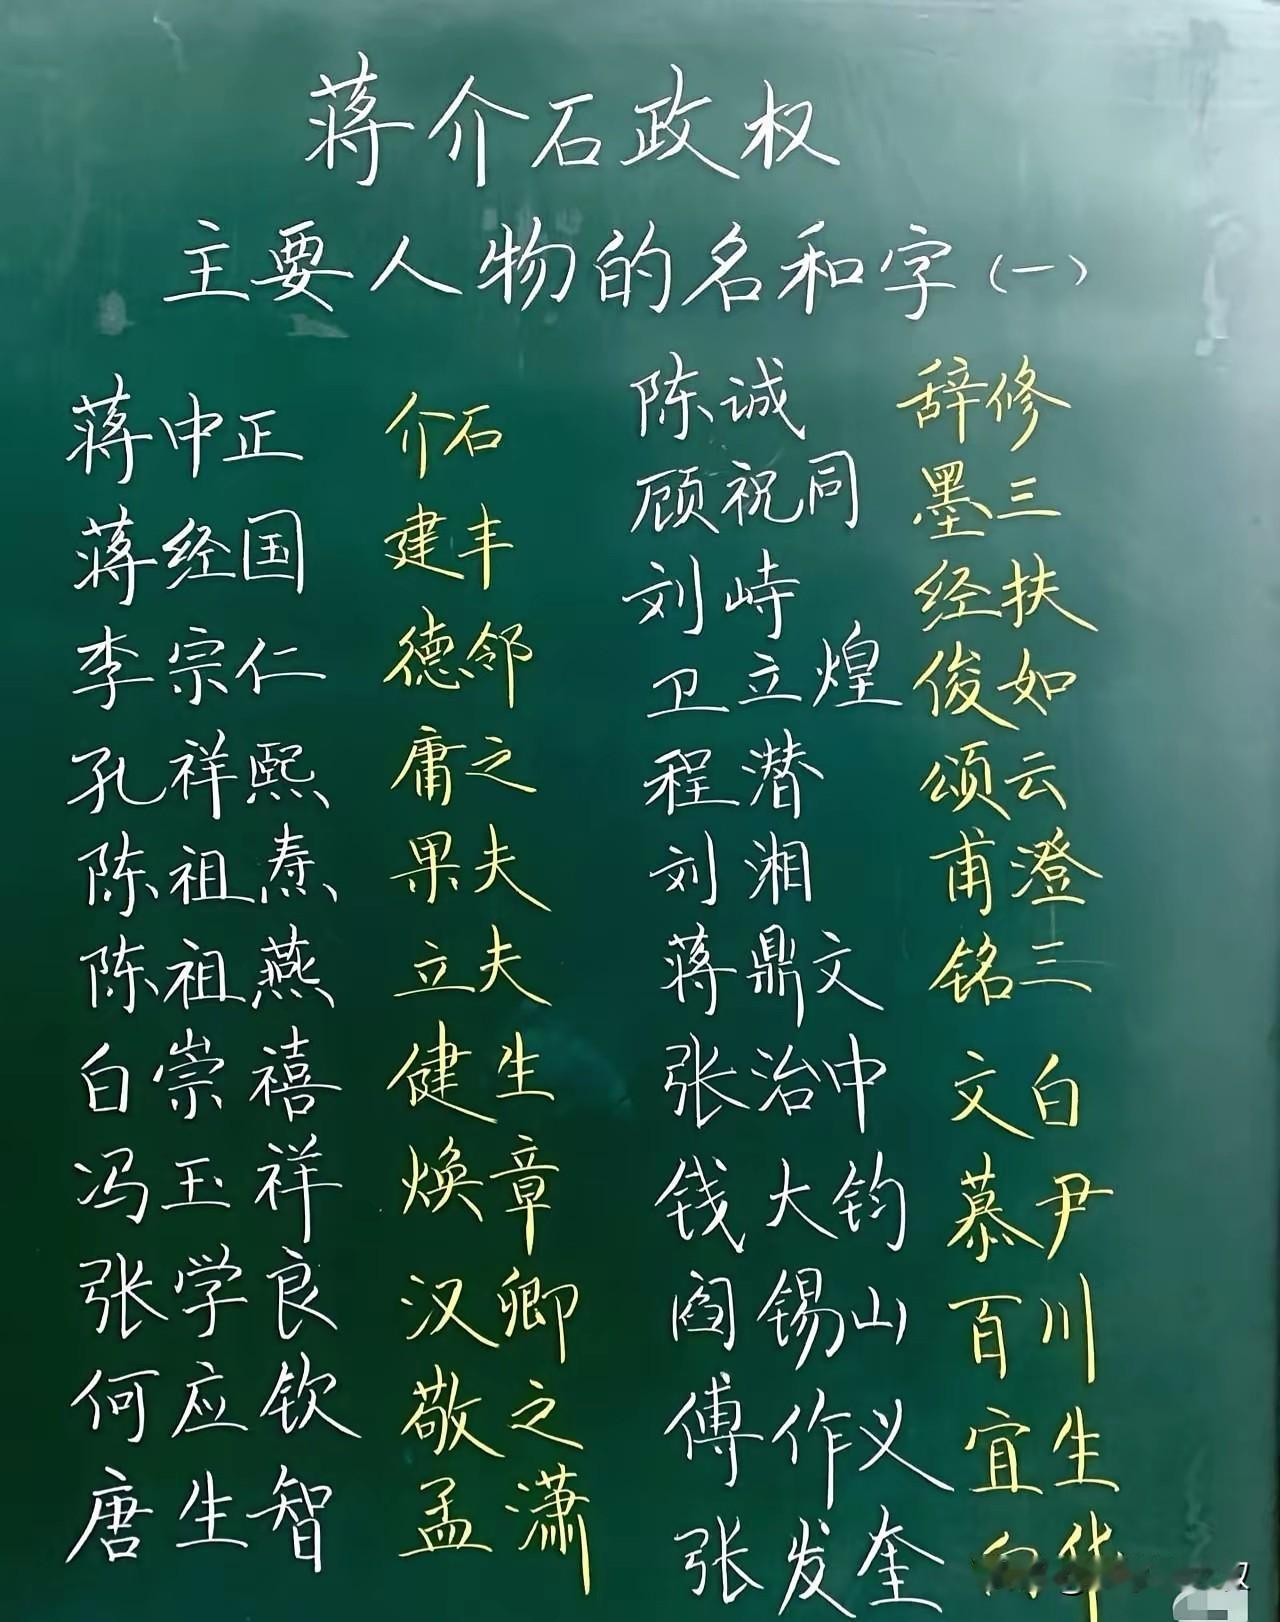 蒋介石政权
主要人物的名和字(一)
蒋中正 介石
蒋经国 建丰
李宗仁 德邻
孔祥熙 庸之
陈祖焘 果夫
陈祖燕 立夫
白崇禧 健生
冯玉祥 焕章
张学良 汉卿
何应钦 敬之
唐生智 孟潇
陈诚 辞修
顾祝同 墨三
刘峙 经扶
卫立煌 俊如
程潜 颂云
刘湘 甫澄
蒋鼎文 铭三
张治中 文白
钱大钧 慕尹
阎锡山 百川
傅作义 宜生
张发奎 向华